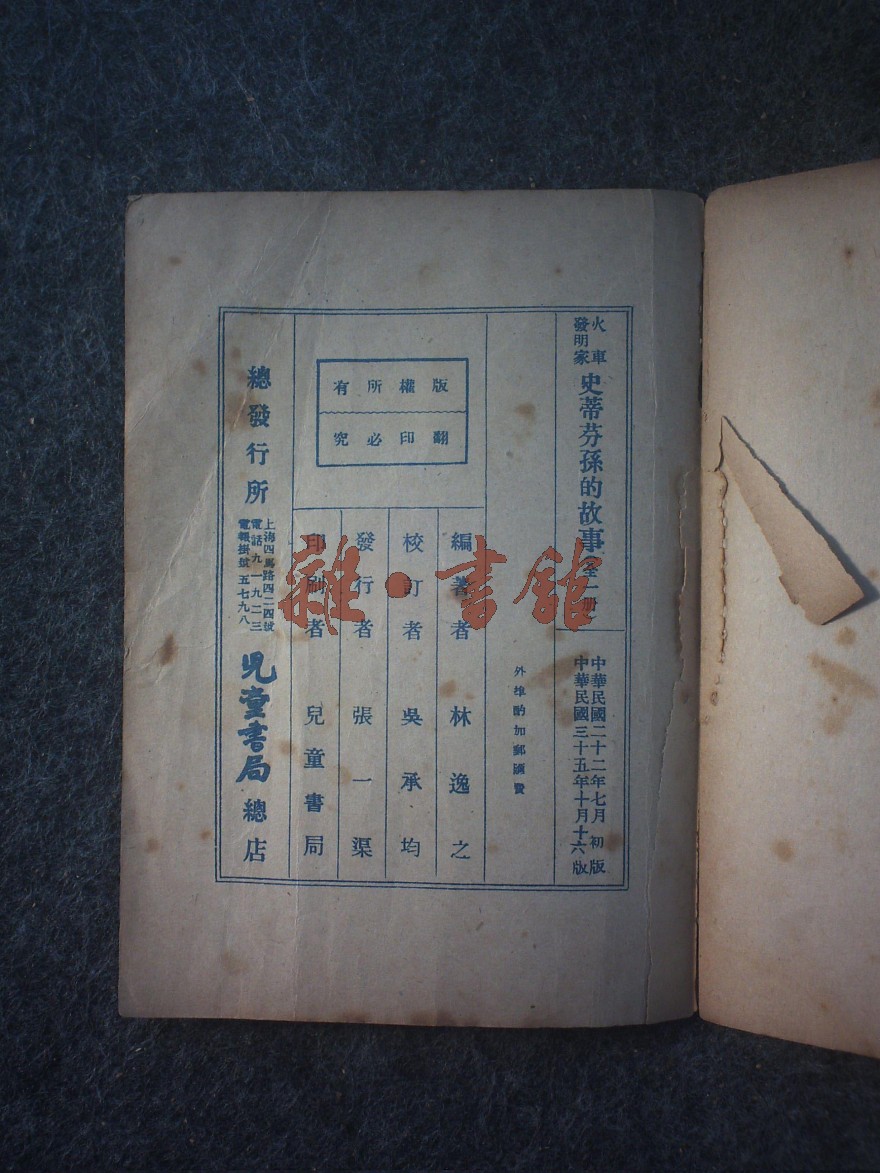 火車
發明家
史蒂芬孫的故事（全一册）
中華民國二十二年七月初版
中華民國三十五年十月十六版
外埠酌加郵匯費
版權所有
翻印必究
編著者 林逸之
校訂者 吳承均
發行者 張一渠
印刷者 兒童書局
總發行所
上海四馬路四二四號
電話九一九二三
電報掛號五七九八
兒童書局總店
雜·書館